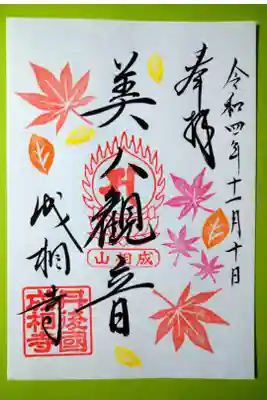 令和四年十一月十日
奉拝
美人観音
山相成
成相寺
丹後國
成相寺